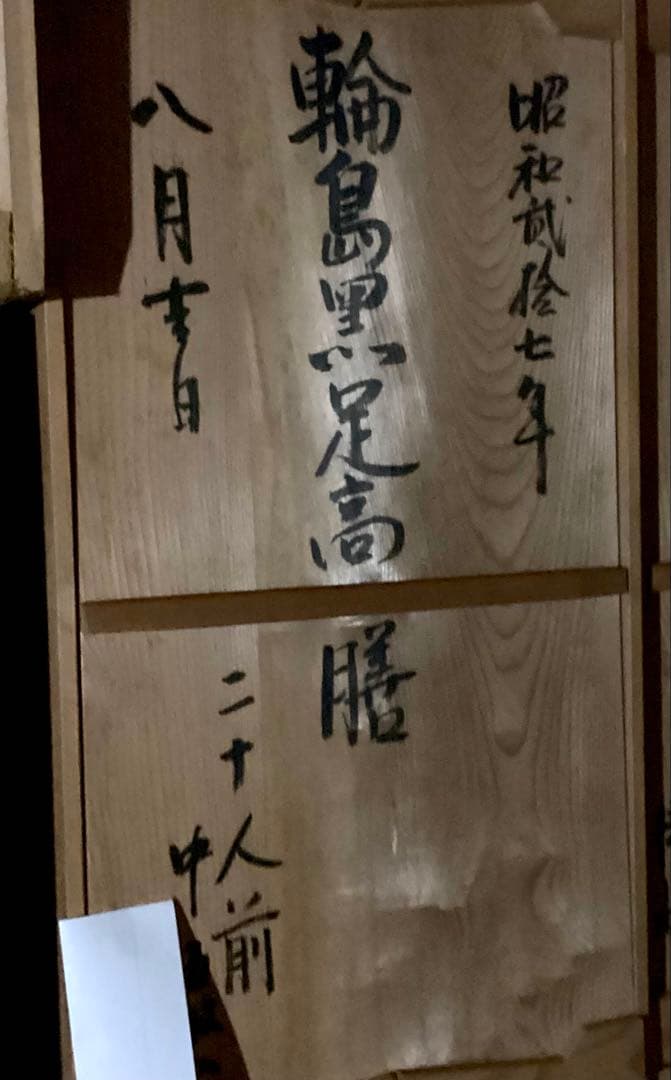 昭和貳拾七年
輪島黒足高膳
二十人前
八月吉日
中